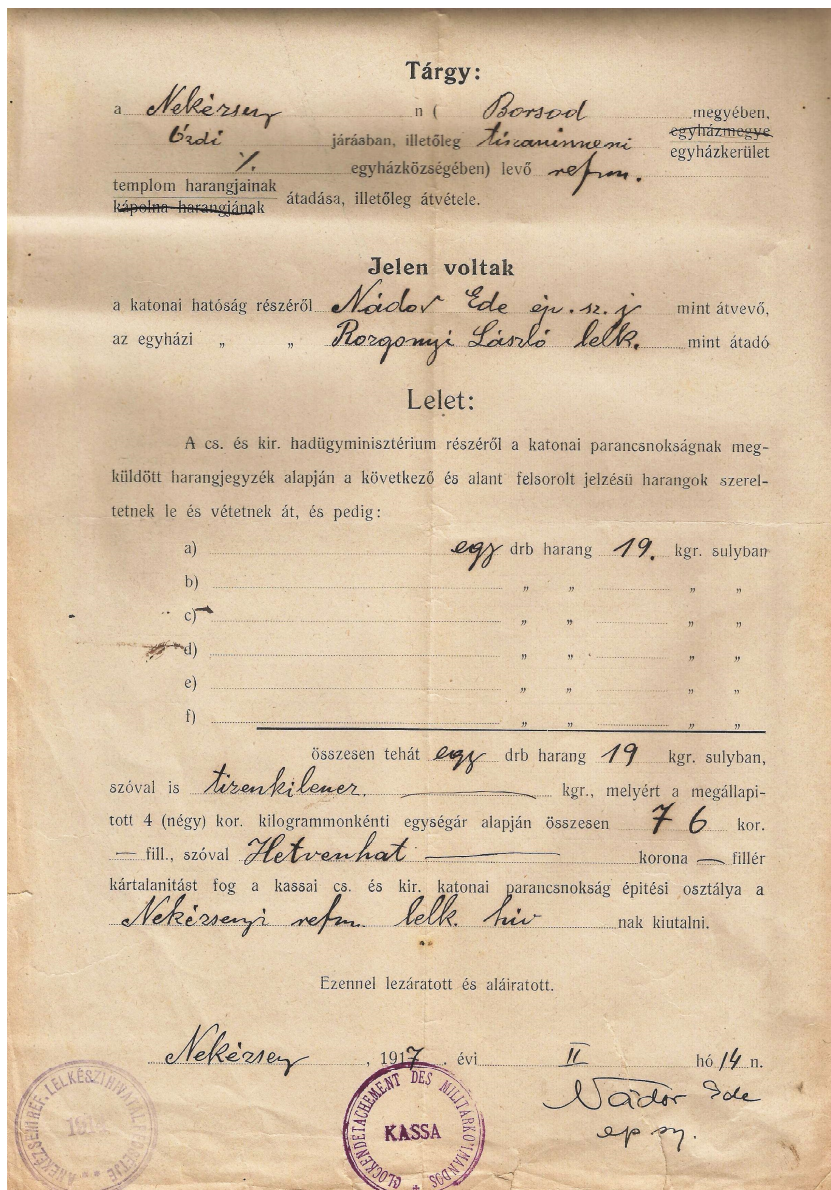 Tárgy:
a Nekézseny n ( Borsod megyében,
Ózdi járásban, illetőleg tiszáninneni egyházmegye
egyházkerület
·/. egyházközségében) levő refm.
templom harangjainak
kápolna harangjának átadása, illetőleg átvétele.
Jelen voltak
a katonai hatóság részéről Nádor Ede ép. sz. j mint átvevő,
az egyházi „ „ Rozgonyi László lelk. mint átadó
Lelet:
A cs. és kir. hadügyminisztérium részéről a katonai parancsnokságnak meg-
küldött harangjegyzék alapján a következő és alant felsorolt jelzésü harangok szerel-
tetnek le és vétetnek át, és pedig:
a) egy drb harang 19. kgr. sulyban
b) „ „ „ „
c) „ „ „ „
d) „ „ „ „
e) „ „ „ „
f) „ „ „ „
összesen tehát egy drb harang 19 kgr. sulyban,
szóval is tizenkilencz. kgr., melyért a megállapi-
tott 4 (négy) kor. kilogrammonkénti egységár alapján összesen 76 kor.
— fill., szóval Hetvenhat korona — fillér
kártalanitást fog a kassai cs. és kir. katonai parancsnokság épitési osztálya a
Nekézsenyi refm. lelk. hiv nak kiutalni.
Ezennel lezáratott és aláiratott.
Nekézseny, 1917. évi II hó 14 n.
Nádor Ede
ep sz.
A NEKÉZSENI REF. LELKÉSZI HIVATAL PECSÉTJE
GLOCKENDETACHEMENT DES MILITÄRKOMMANDOS
KASSA